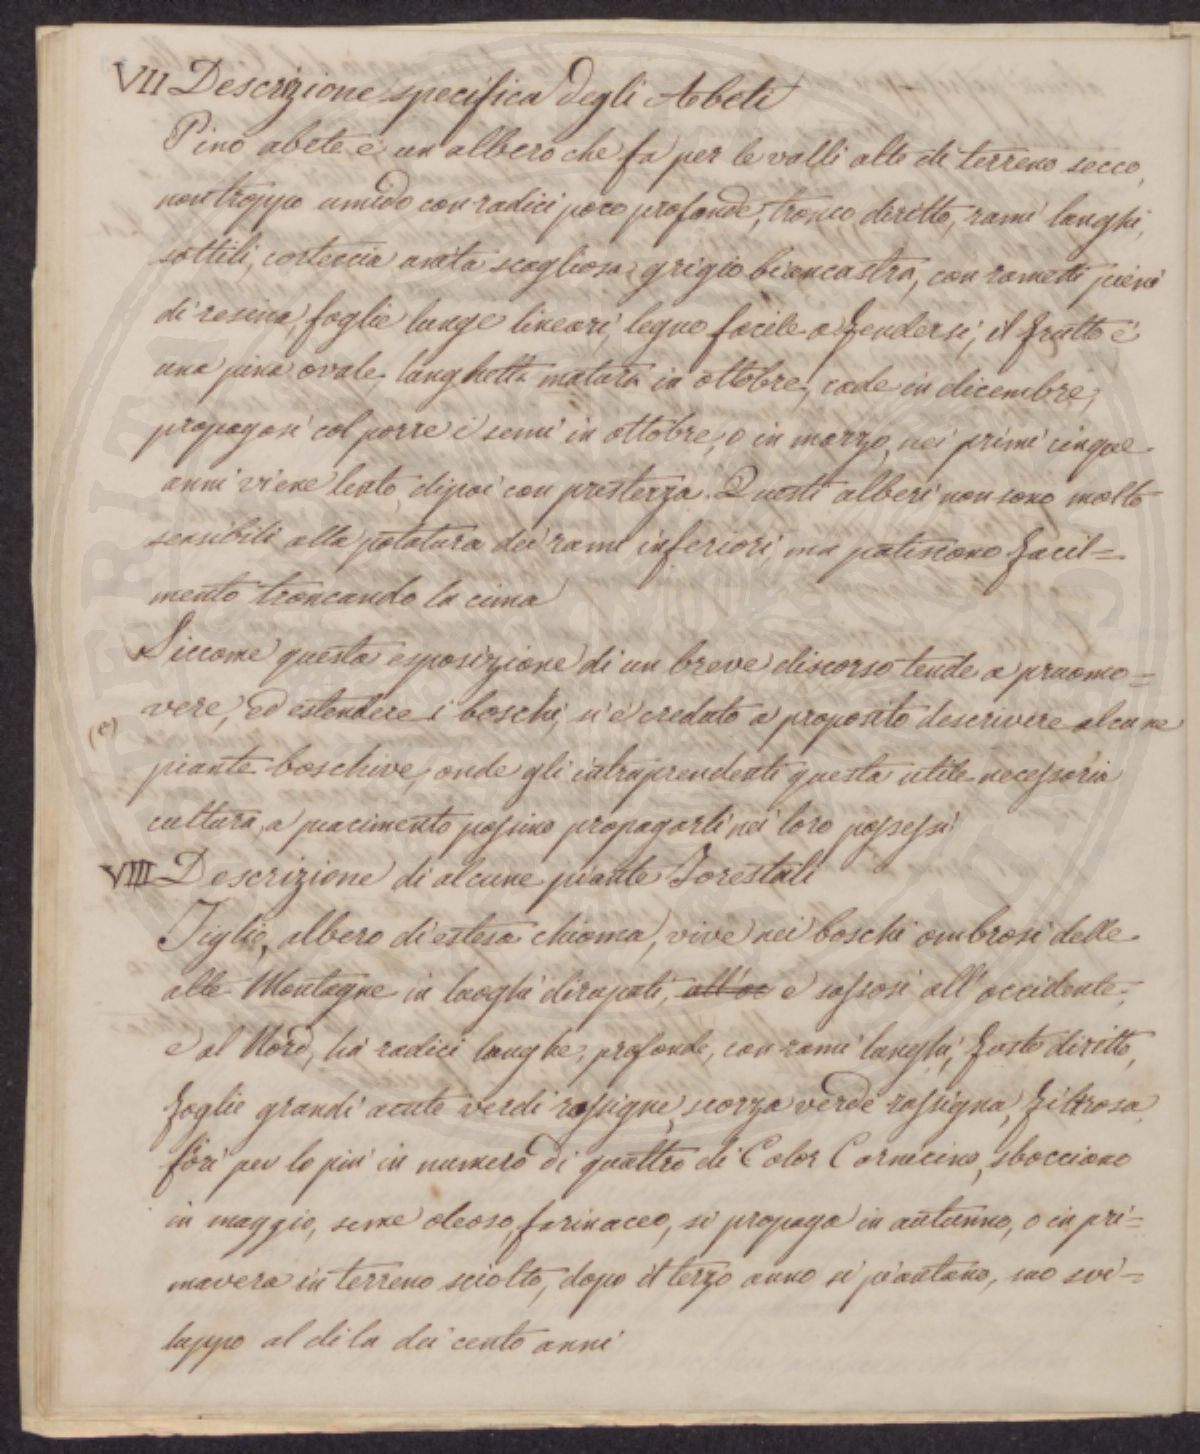 VII Descrizione specifica degli Abeti
Pino abete è un albero che fa per le valli alte di terreno secco,
non troppo umido con radici poco profonde, tronco diritto, rami lunghi,
sottili, corteccia unita scagliosa, grigio biancastra, con rametti pieni
di resina, foglie lunge lineari, legno facile a fendersi, il frutto è
una pina ovale lunghetta matura in ottobre, cade in dicembre;
propagasi col porre i semi in ottobre, o in marzo, nei primi cinque
anni viene lento, dipoi con prestezza. Questi alberi non sono molto
sensibili alla potatura dei rami inferiori, ma patiscono facil=
mente troncando la cima
Siccome questa esposizione di un breve discorso tende a pruomo=
vere, ed estendere i boschi, si è creduto a proposito descrivere alcune
(e)
piante boschive, onde gli intraprendenti questa utile necessaria
cultura, a piacimento possino propagarli nei loro possessi
VIII Descrizione di alcune piante Forestali
Tiglio, albero di estesa chioma, vive nei boschi ombrosi delle
alte Montagne in luoghi dirupati, all'oc e sassosi all'occidente,
e al Nord, ha radici lunghe, profonde, con rami lunghi, fusto diritto,
foglie grandi acute verdi rossigne, scorza verde rossigna, filtrosa,
fiori per lo più in numero di quattro di Color Carnicino, sbocciano
in maggio, seme oleoso, farinaceo, si propaga in autunno, o in pri=
mavera in terreno sciolto, dopo il terzo anno si piantano, suo svi=
luppo al di la dei cento anni